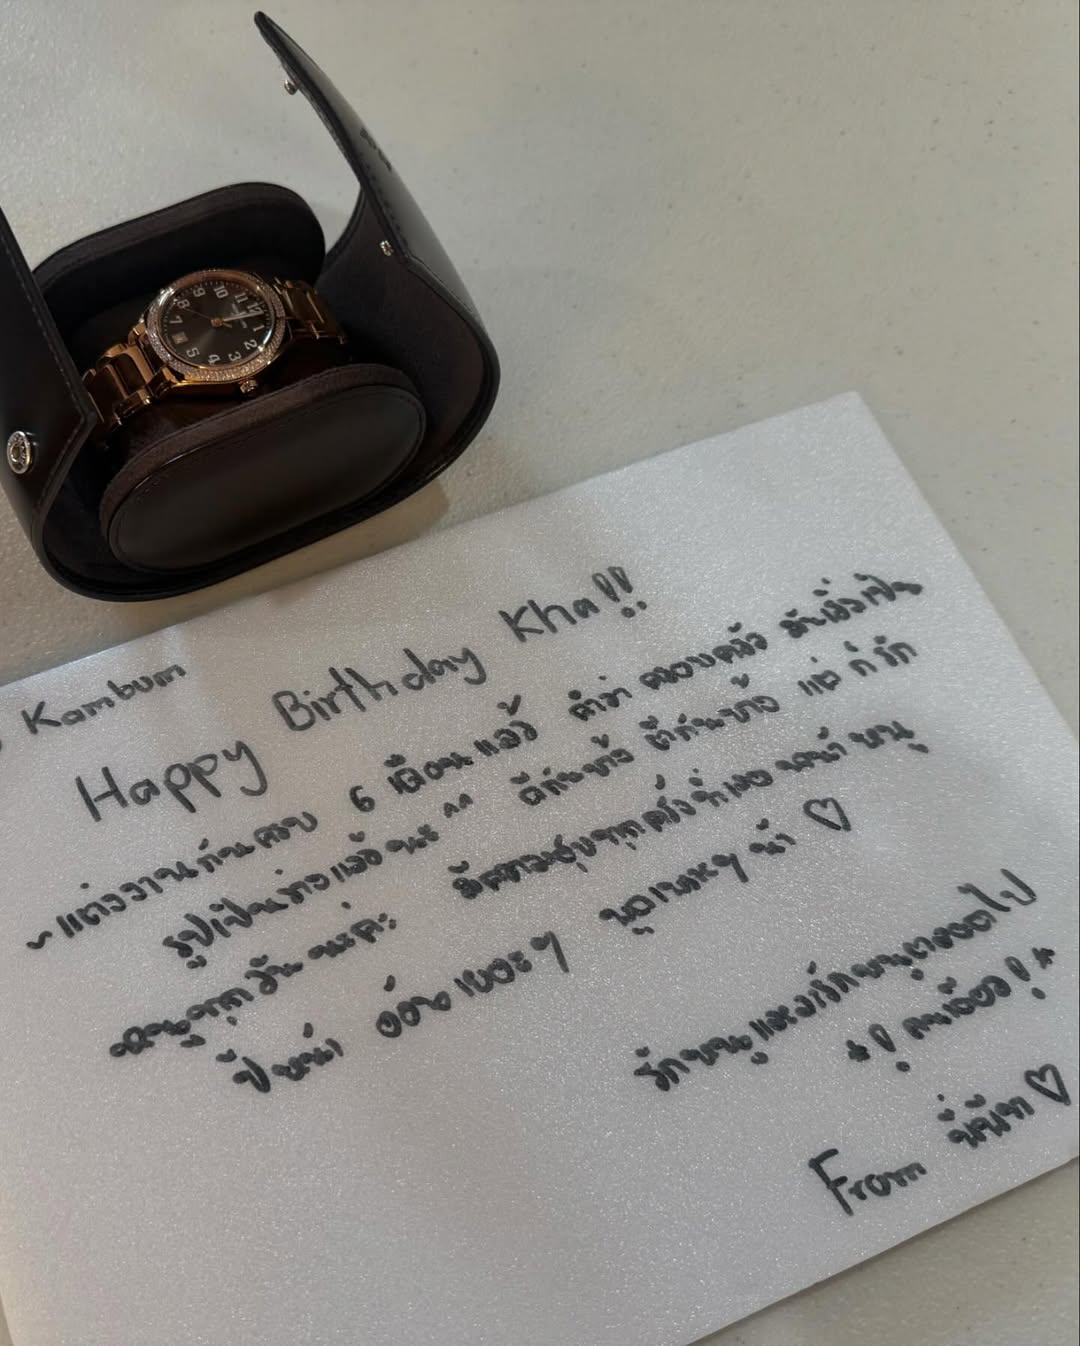 Kambum
Happy Birthday Kha!!
~ แต่งงานกันครบ 6 เดือนแล้ว คำว่า ครอบครัว มันเริ่มเป็น
รูปเป็นร่างแล้วนะ ^^ ดีกันบ้าง ตีกันบ้าง แต่ ก็ รัก
หนูทุกวัน นะคะ มีความสุขทุกครั้งที่เจอ หน้า หนู
ปีหน้า อ้อนเยอะๆ นู๋เยอะๆ น้า ♡
รักหนูและจะรักหนูตลอดไป
*! คนเดียว! *
From ♡